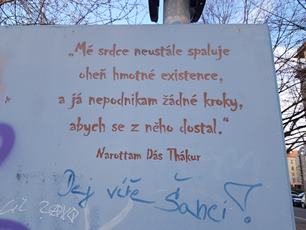 „Mé srdce neustále spaluje
oheň hmotné existence,
a já nepodnikam žádné kroky,
abych se z něho dostal.“
Narottam Dás Thákur
Dej víře Šanci!